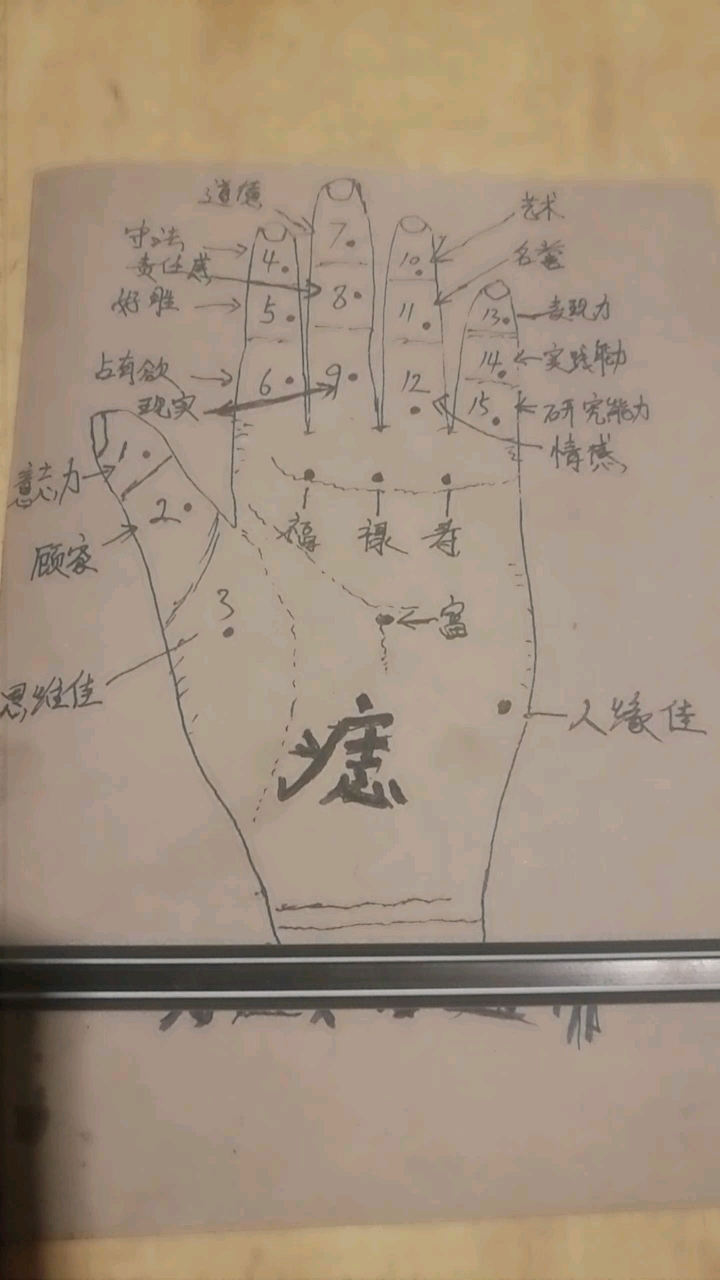 道德
艺术
守法
责任感
名誉
好胜
表现力
占有欲
实践能力
现实
研究能力
情感
意志力
顾家
思维佳
7
4
10
8
5
11
13
14
6
9
12
15
1
2
3
福 禄 寿
富
人缘佳
痣